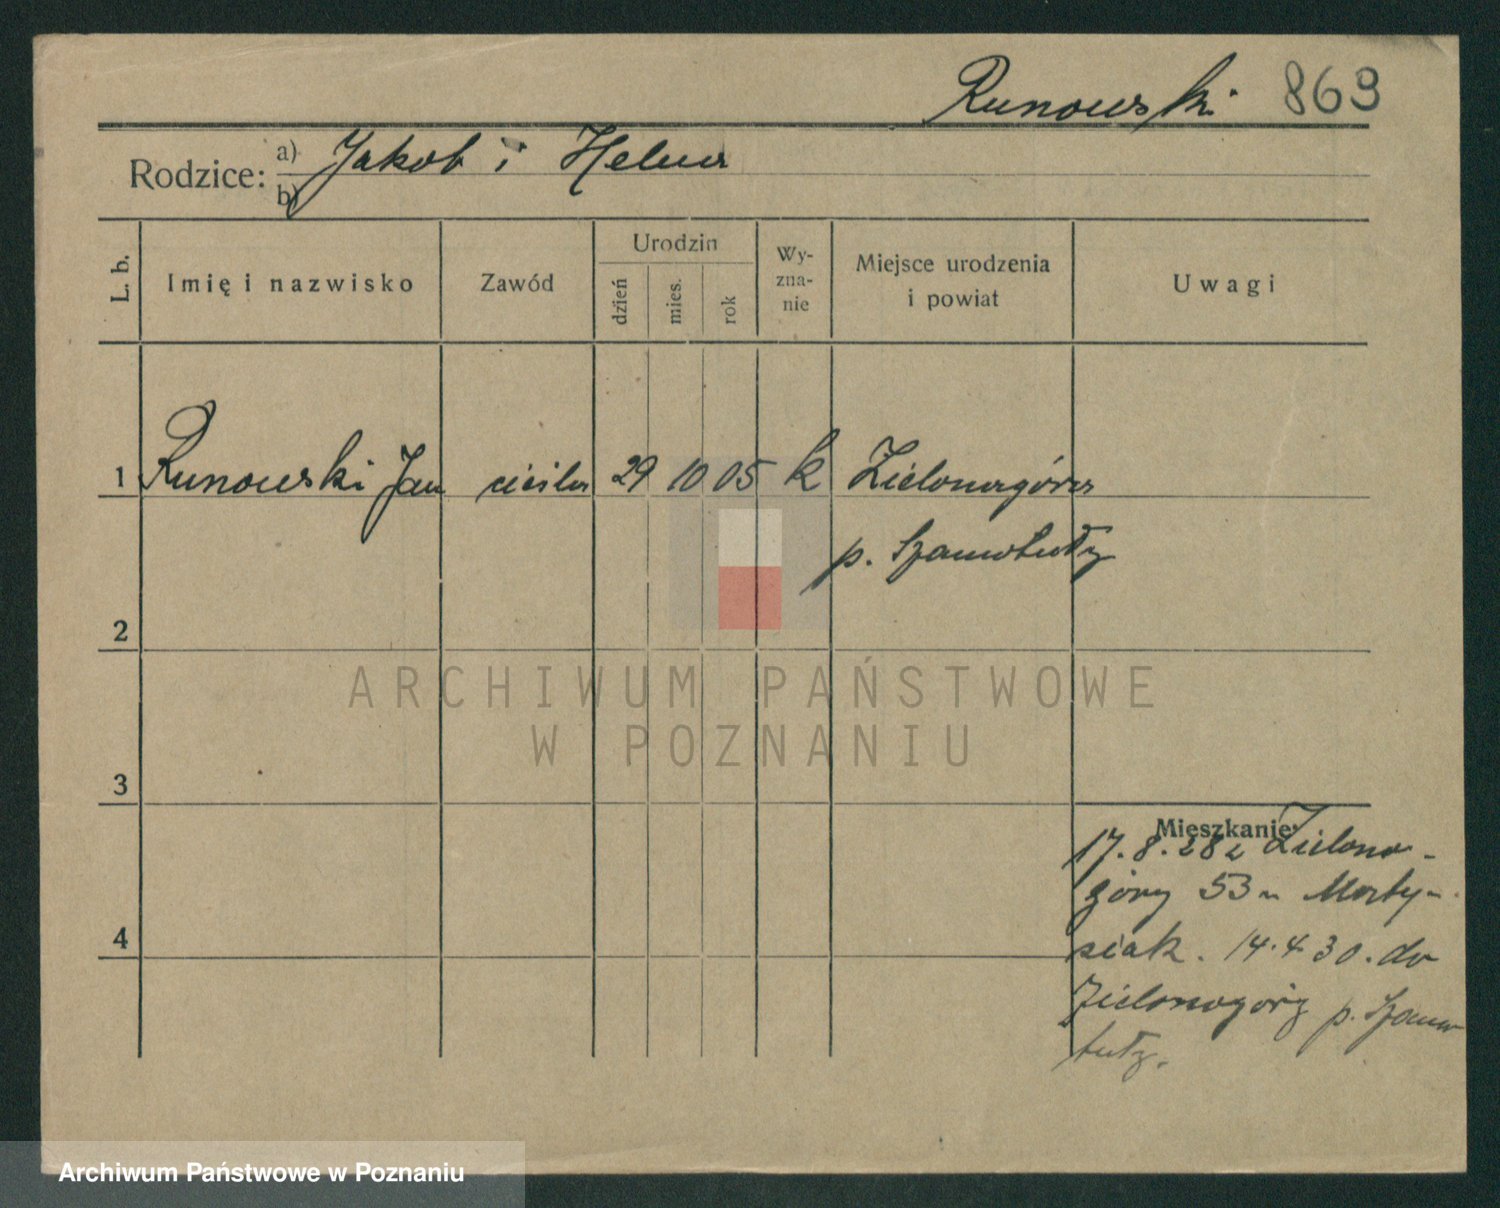 Runowski 869
Rodzice: a) Jakob i Helena
b)
L. b. Imię i nazwisko Zawód Urodzin dzień mies. rok Wyznanie Miejsce urodzenia i powiat Uwagi
1 Runowski Jan cieśla 29 10 05 k Zielonagóra
p. Szamotuły
2
ARCHIWUM PAŃSTWOWE
W POZNANIU
3
Mieszkanie:
17.8.28 z Zielono-
góry 53 u Marty-
siak. 14.4.30. do
Zielonogóry p. Szamo
tuły.
4
Archiwum Państwowe w Poznaniu